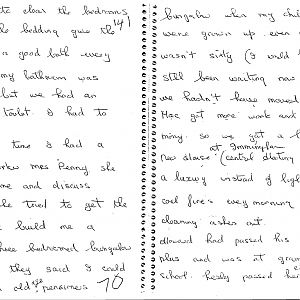 to clear the bedrooms
141
le bedding give the
a good bath every
my bathroom was
but we had an
toilet. I had to
time I had a
Mrs Penny she
me and discuss
le tried to get the
build me a
three bedroomed bungalow
they said I could
old age pensioners 70
bungalow when my chil
were grown up even
wasn't sixty (I would h
still been waiting now
we hadn't have moved
Mac get more work and
mony. so we got a
at Immingham
new
(central
a luxury instead of light
coal fires every morning
cleaning ashes out.
had passed his
plus and was at gram
school.
passed her